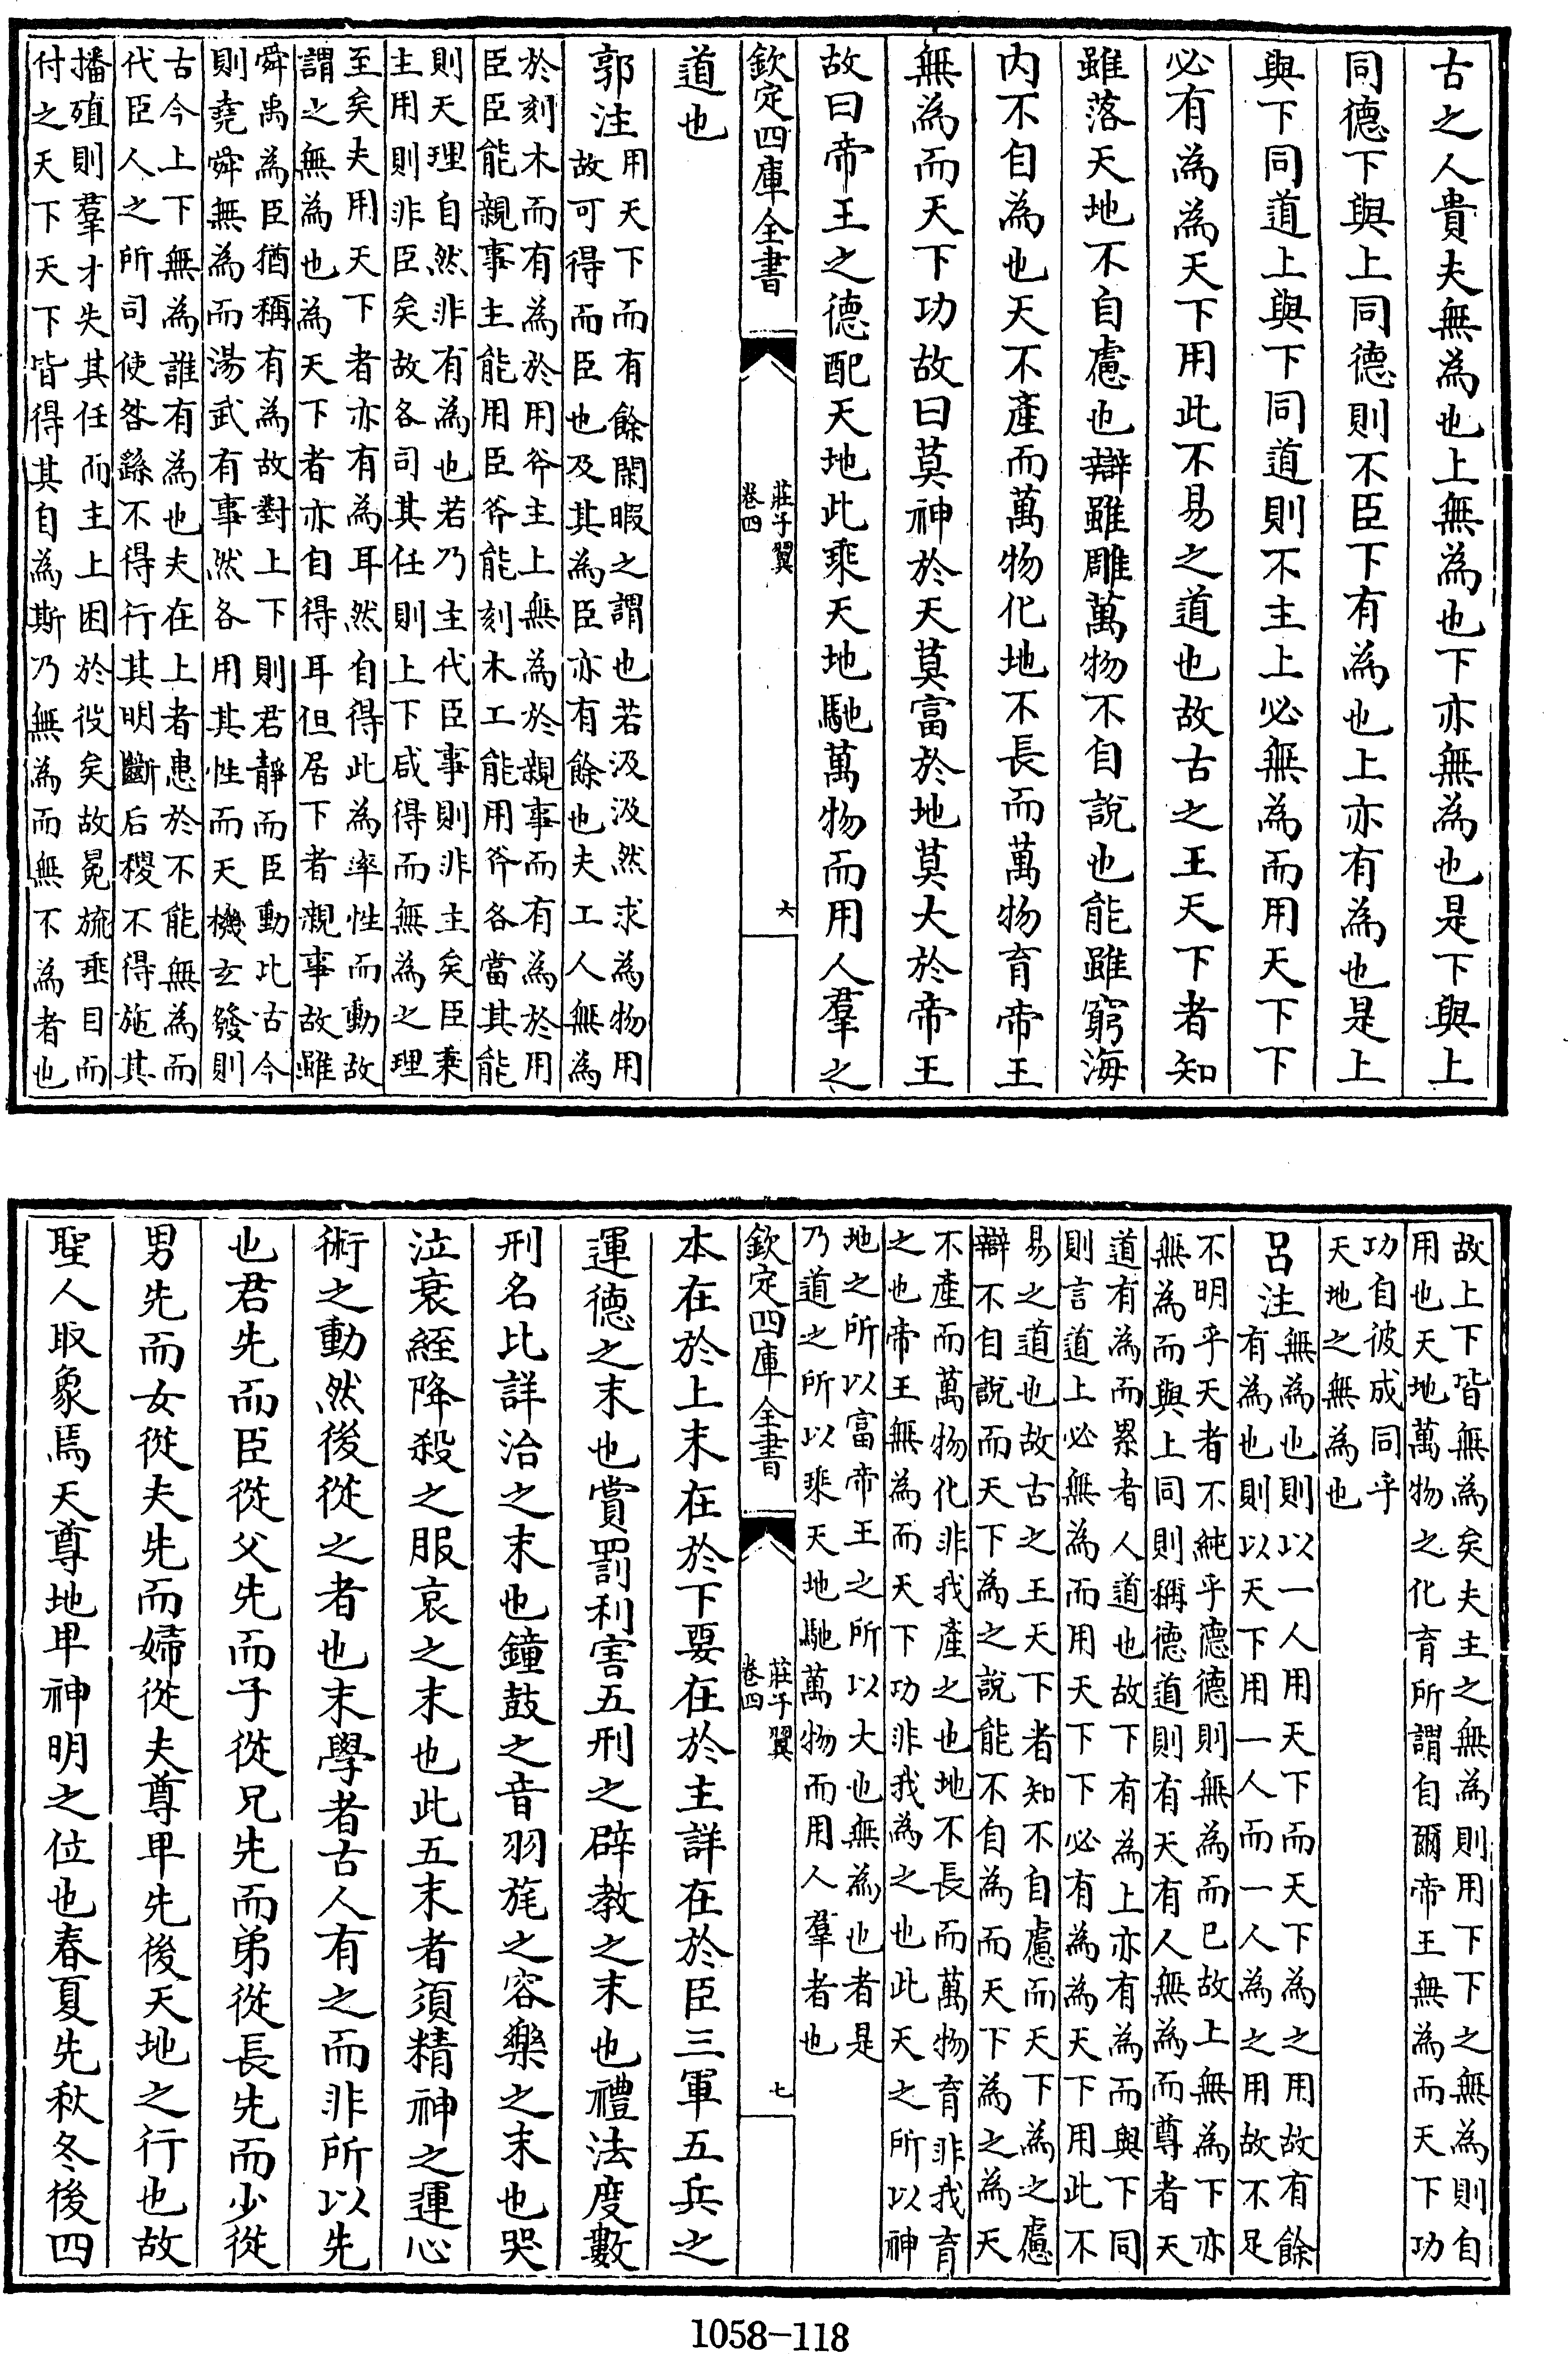 古之人貴夫無為也上無為也下亦無為也是下與上
同德下與上同德則不臣下有為也上亦有為也是上
與下同道上與下同道則不主上必無為而用天下下
必有為為天下用此不易之道也故古之王天下者知
雖落天地不自慮也辯雖雕萬物不自說也能雖窮海
内不自為也天不產而萬物化地不長而萬物育帝王
無為而天下功故曰莫神於天莫富於地莫大於帝王
故曰帝王之德配天地此乘天地馳萬物而用人羣之
欽定四庫全書
莊子翼
卷四
六
道也
郭注
用天下而有餘閑暇之謂也若汲汲然求為物用
故可得而臣也及其為臣亦有餘也夫工人無為
於刻木而有為於用斧主上無為於親事而有為於用
臣臣能親事主能用臣斧能刻木工能用斧各當其能
則天理自然非有為也若乃主代臣事則非主矣臣秉
主用則非臣矣故各司其任則上下咸得而無為之理
至矣夫用天下者亦有為耳然自得此為率性而動故
謂之無為也為天下者亦自得耳但居下者親事故雖
舜禹為臣猶稱有為故對上下則君靜而臣動比古今
則堯舜無為而湯武有事然各用其性而天機玄發則
古今上下無為誰有為也夫在上者患於不能無為而
代臣人之所司使咎繇不得行其明斷后稷不得施其
播殖則羣才失其任而主上困於役矣故冕旒垂目而
付之天下天下皆得其自為斯乃無為而無不為者也
故上下皆無為矣夫主之無為則用下下之無為則自
用也天地萬物之化育所謂自爾帝王無為而天下功
功自彼成同乎
天地之無為也
呂注
無為也則以一人用天下而天下為之用故有餘
有為也則以天下用一人而一人為之用故不足
不明乎天者不純乎德德則無為而已故上無為下亦
無為而與上同則稱德道則有天有人無為而尊者天
道有為而累者人道也故下有為上亦有為而與下同
則言道上必無為而用天下下必有為為天下用此不
易之道也故古之王天下者知不自慮而天下為之慮
辯不自說而天下為之說能不自為而天下為之為天
不產而萬物化非我產之也地不長而萬物育非我育
之也帝王無為而天下功非我為之也此天之所以神
地之所以富帝王之所以大也無為也者是
乃道之所以乘天地馳萬物而用人羣者也
欽定四庫全書
莊子翼
卷四
七
本在於上末在於下要在於主詳在於臣三軍五兵之
運德之末也賞罰利害五刑之辟教之末也禮法度數
刑名比詳治之末也鐘鼓之音羽旄之容樂之末也哭
泣衰絰降殺之服哀之末也此五末者須精神之運心
術之動然後從之者也末學者古人有之而非所以先
也君先而臣從父先而子從兄先而弟從長先而少從
男先而女從夫先而婦從夫尊卑先後天地之行也故
聖人取象焉天尊地卑神明之位也春夏先秋冬後四
1058-118